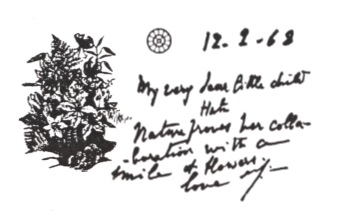 12-2-68
My very dear little child
Nature proves her colla-
-boration with a
smile of flowers.
love